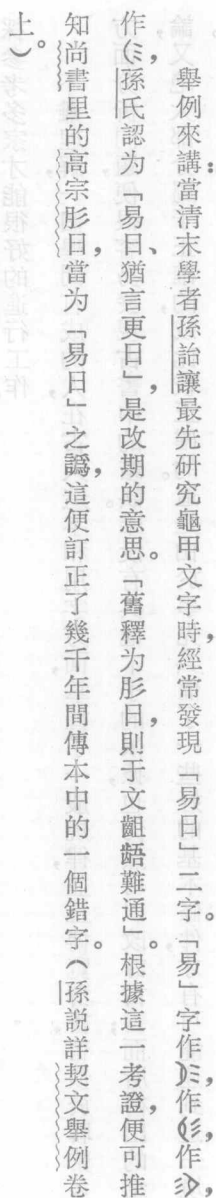 舉例來講：當清末學者孫詒讓最先研究龜甲文字時，經常發現「易日」二字。「易」字作，作，作，
作，孫氏認为「易日、猶言更日」，是改期的意思。「舊釋为肜日，則于文齟齬難通」。根據這一考證，便可推
知尚書里的高宗肜日，當为「易日」之譌，這便訂正了幾千年間傳本中的一個錯字。（孫説詳契文舉例卷
上）。